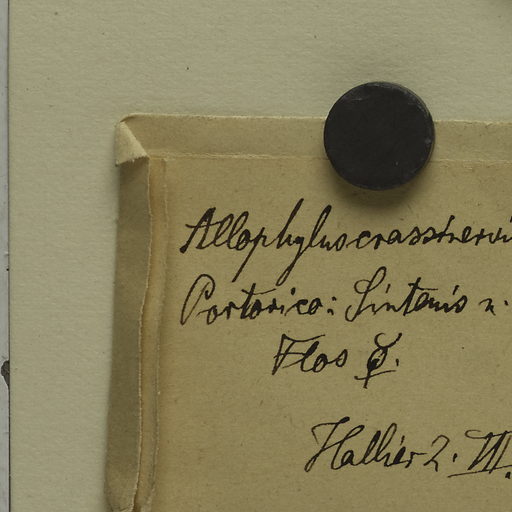 Allophylus crassinervi
Portorico: Sintenis n.
Flos ☿.
Hallier 2. III.